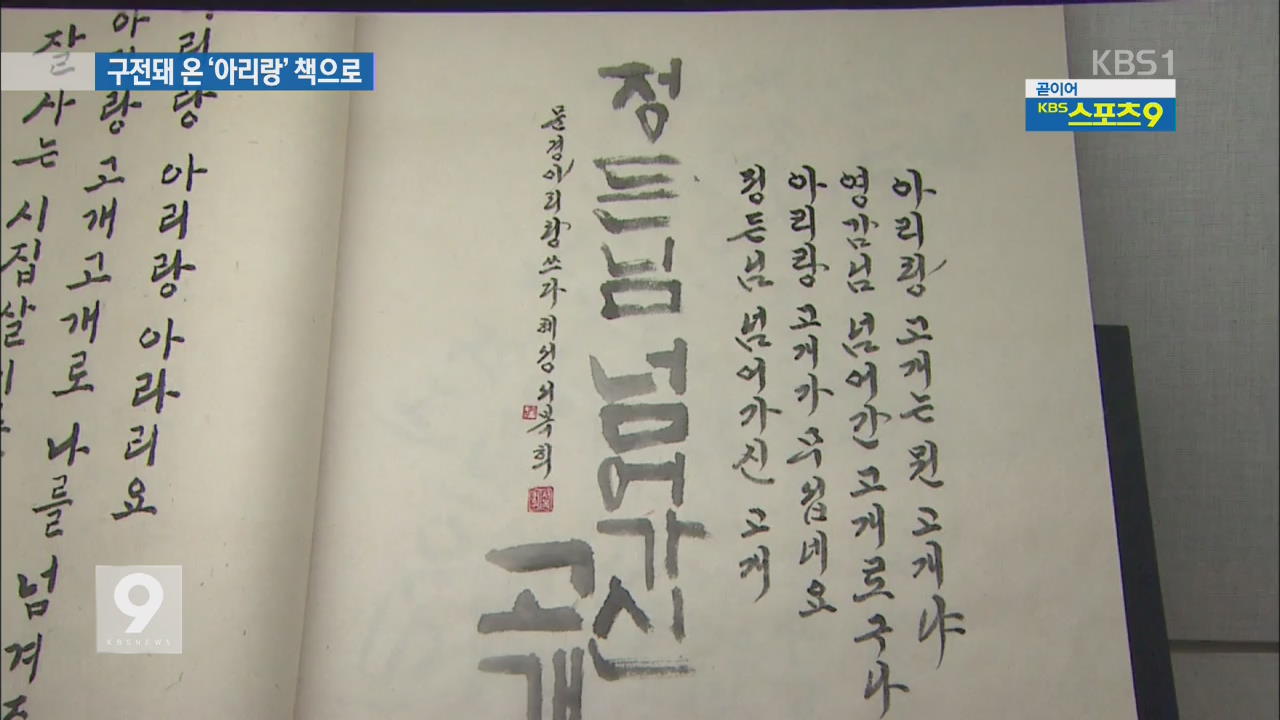 구전돼 온 ‘아리랑’ 책으로
KBS1
곧이어
KBS 스포츠9
아리랑 고개는 뭔 고개냐
영감님 넘어간 고개로구나
아리랑 고개가 우습네요
정든님 넘어가신 고개
정든님 넘어가신
고개
문경아리랑 쓰다
리랑 아리랑 아라리요
아리랑 고개고개로 나를 넘겨
잘사는 시집살이
9
KBS NEWS